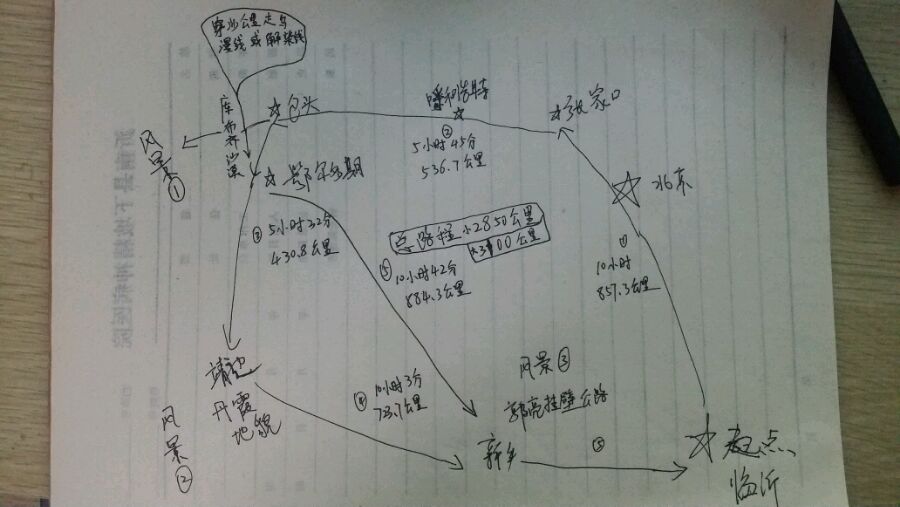 穿沙公路走乌
漫线或解柴线
库布齐沙漠
包头
呼和浩特
张家口
②
5小时45分
536.7公里
风景①
鄂尔多斯
北京
③
5小时32分
430.8公里
总路程≈2850公里
≈3100公里
①
10小时
857.3公里
⑤
10小时42分
884.3公里
靖边
丹霞
地貌
④
10小时3分
723.7公里
风景③
郭亮挂壁公路
风景②
新乡
⑤
起点
临沂